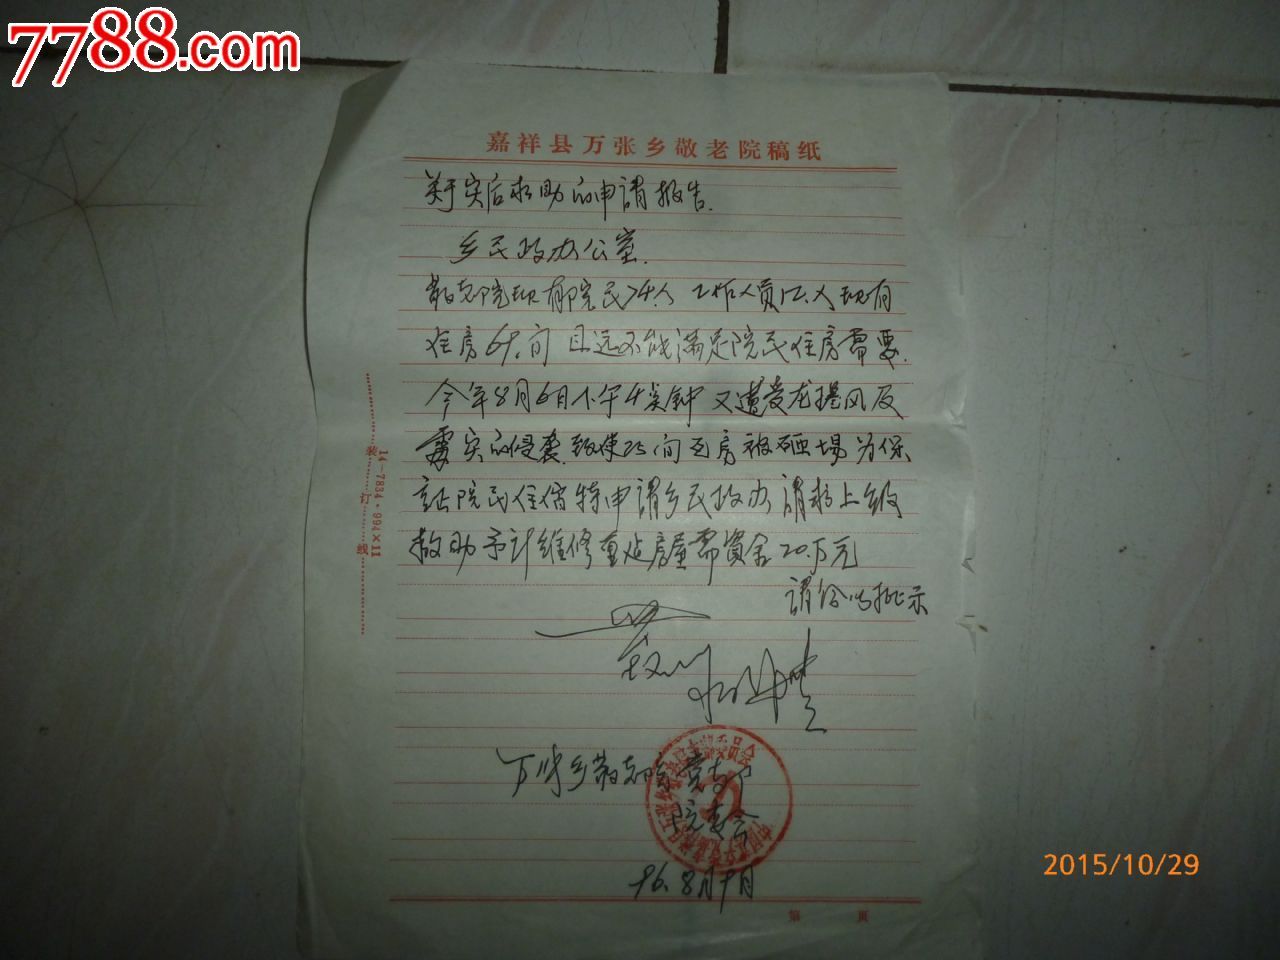 7788.com
嘉祥县万张乡敬老院稿纸
关于灾后救助的申请报告.
乡民政办公室.
敬老院现有院民74人 工作人员12人现有
住房69间 且远不能满足院民住房需要.
今年8月6日下午4点钟又遭受龙捲风及
雹灾的侵袭致使25间瓦房被砸塌为保
证院民住宿特申请乡民政办请求上级
救助予计维修重建房屋需资金20.万元
请给以批示
万张乡敬老院党支部
院委会
96.8月9日
第 页
装订线
14-7834·994×11
2015/10/29